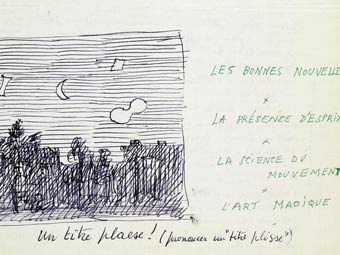 LES BONNES NOUVELLE
*
LA PRÉSENCE D'ESPRI
*
LA SCIENCE DU
MOUVEMENT
*
L'ART MAGIQUE
Un titre please! (prononcer un "titre plisse")